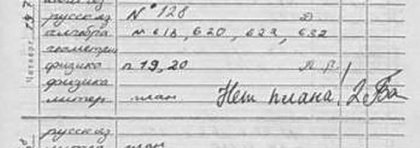 Четверг
русск яз № 128
алгебра № 618, 620, 622, 632
геометрия
физика п 19, 20
физика
литер. план Нет плана! 2
русск яз
литер план